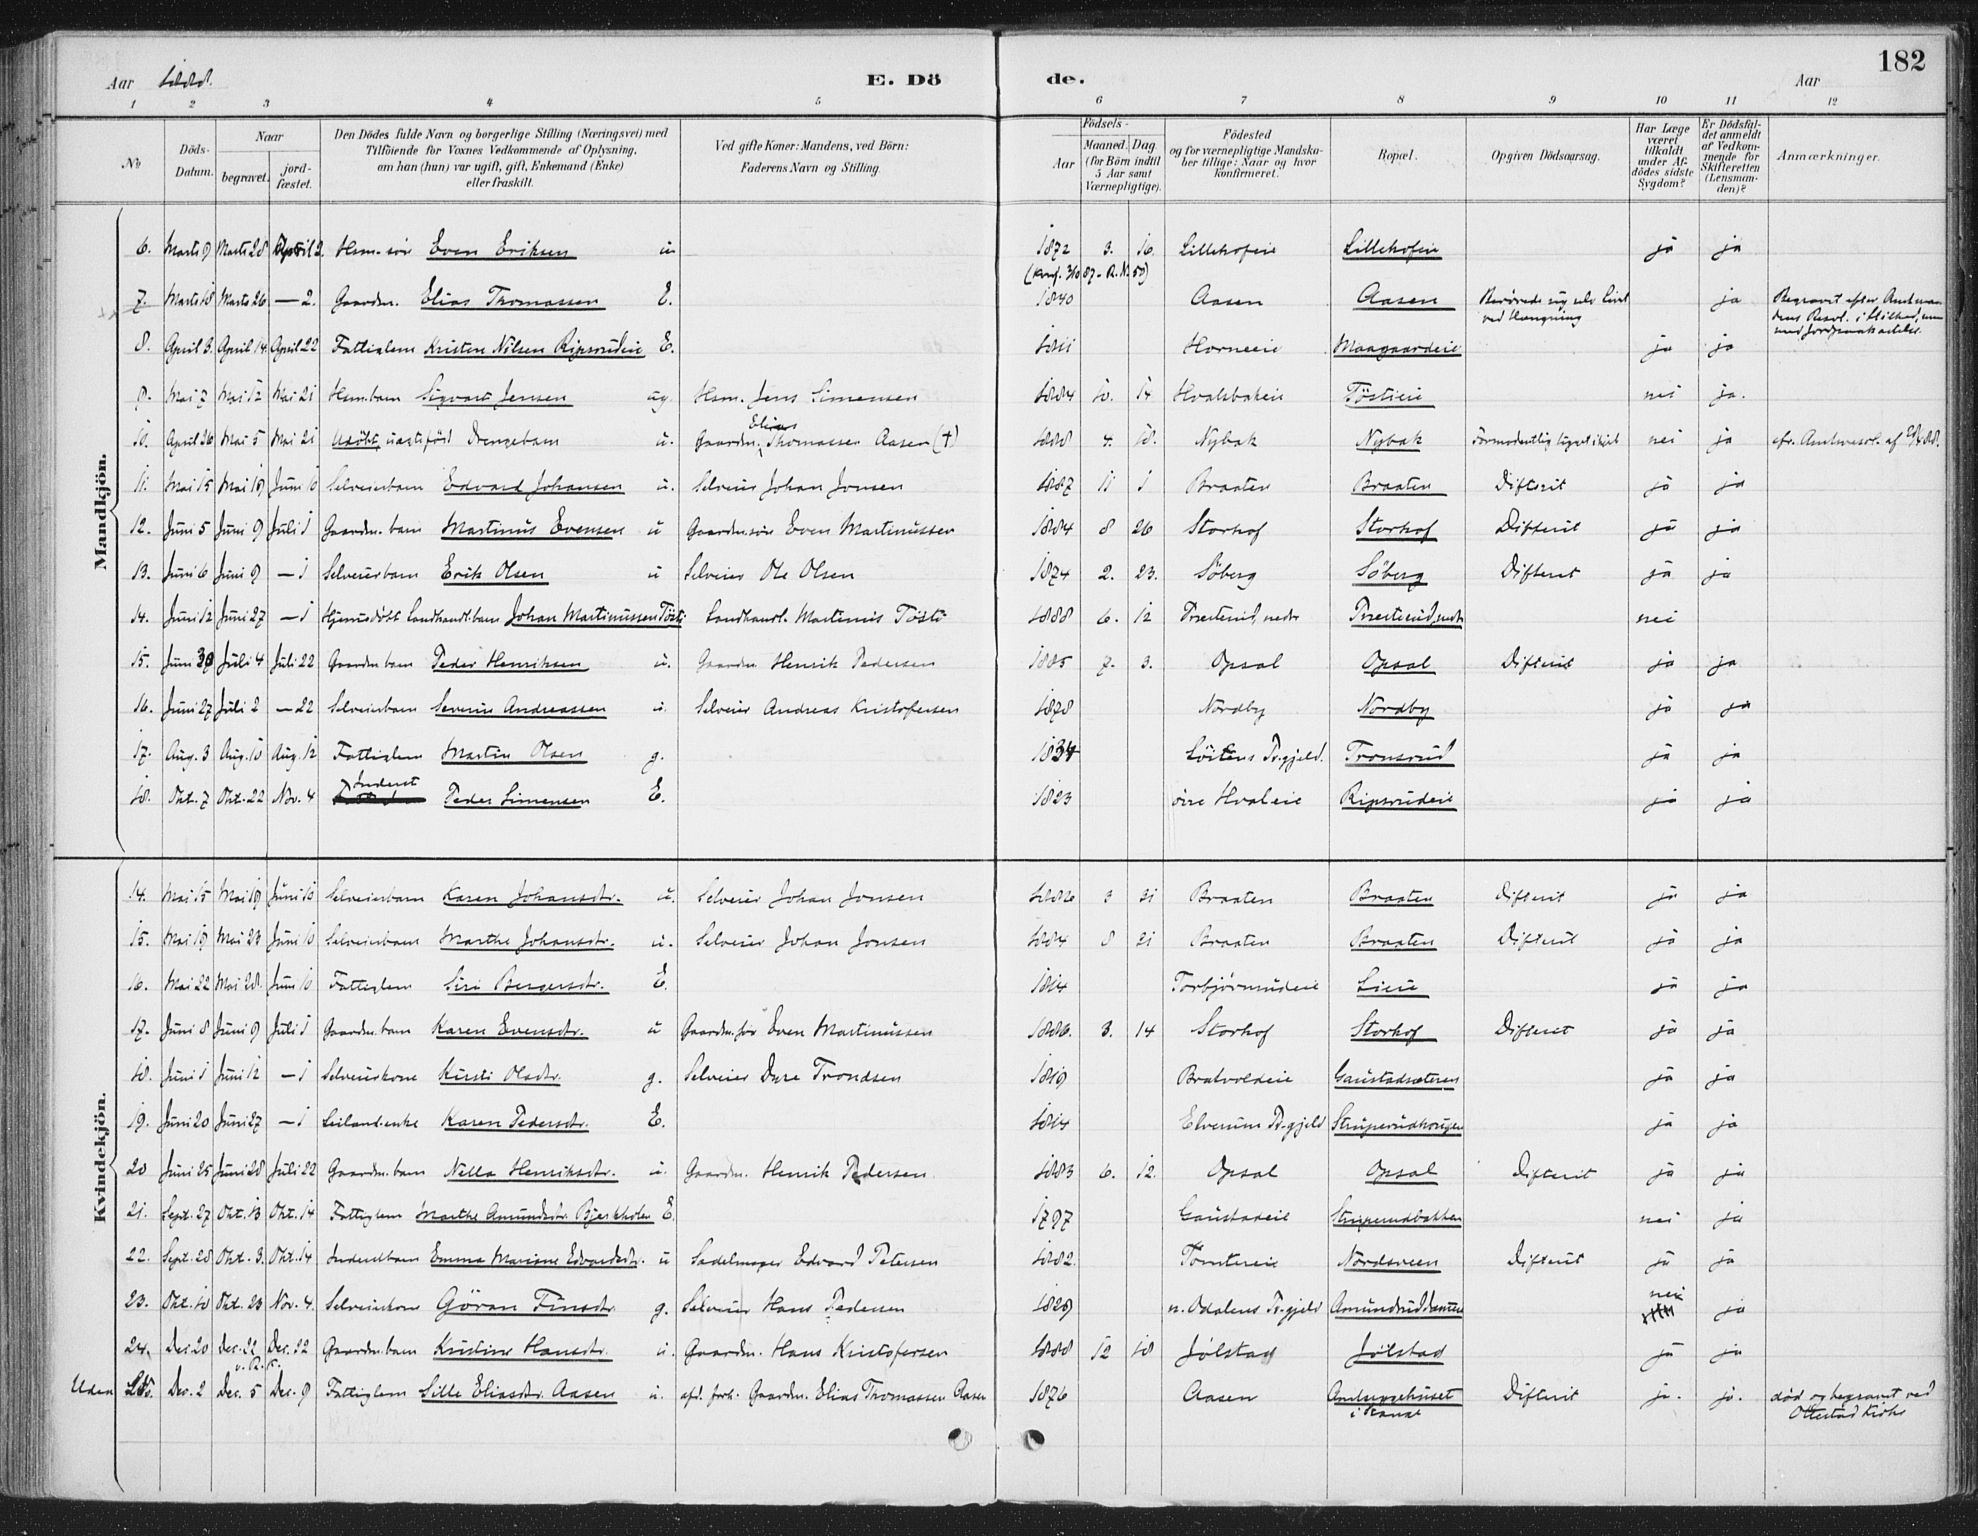 182
Aar 1888. E. Dö de. Aar
1 2 3 4 5 6 7 8 9 10 11 12
No
Döds-Datum.
Naar begravet. jordfæstet.
Den Dödes fulde Navn og borgerlige Stilling (Næringsvei) med Tilföiende for Voxnes Vedkommende af Oplysning, om han (hun) var ugift, gift, Enkemand (Enke) eller fraskilt.
Ved gifte Koner: Mandens, ved Börn: Faderens Navn og Stilling.
Födsels- Aar Maaned. Dag. (for Börn indtil 5 Aar samt Værnepligtige).
Födested og for værnepligtige Mandskaber tillige: Naar og hvor konfirmeret.
Bopæl.
Opgiven Dödsaarsag.
Har Læge været tilkaldt under Afdödes sidste Sygdom?
Er Dödsfaldet anmeldt af Vedkommende for Skifteretten (Lensmanden)?
Anmærkninger.
Mandkjön.
6. Marts 9 Marts 28 April 2. Hsm. sön Even Eriksen u 1872 3. 16. Lillehofeie Lillehofeie ja ja
7. Marts 18 Marts 26 — 2. Gaardm. Elias Thomassen E. 1840 Aasen Aasen Berövede sig selv Livet ved Hængning ja Begravet efter Amtmandens Resol. i Stilhed, men med Jordpaakastelse
8. April 3. April 14 April 22 Fattiglem Kristen Nilsen Ripsrudeie E. 1811 Horneeie Maagaardeie ja ja
9. Mai 7 Mai 12 Mai 21 Hsm. barn Sigvart Jensen ug. Hsm. Jens Simensen 1884 10. 14 Hvalsbakeie Töstieie nei ja.
10. April 26 Mai 5 Mai 21 Udöbt, uægtefödt Drengebarn u. Gaardm. Elias Thomassen Aasen (†) 1888 4. 18. Nybak Nybak Formodentlig ligget ihjel nei ja
11. Mai 15 Mai 19 Juni 10 Selveierbarn Edvard Johansen u. Selveier Johan Jonsen 1887 11 1 Braaten Braaten Difterit ja ja
12. Juni 5 Juni 9 Juli 1 Gaardm. barn Martinus Evensen u Gaardm. sön Even Martinussen 1884 8 26 Storhof Storhof Difterit ja ja
13. Juni 6 Juni 9 — 1 Selveierbarn Erik Olsen u Selveier Ole Olsen 1874 2. 23. Söberg Söberg Difterit ja ja
14. Juni 12 Juni 27 — 1 Hjemmedöbt Landhandl. barn Johan Martinussen Tösti Landhandl. Martinus Tösti 1888 6. 12 Presterud, nedre Presterud, nedre nei
15. Juni 30 Juli 4 Juli 22 Gaardm barn Peder Henriksen u. Gaardm. Henrik Pedersen 1885 7. 3. Opsal Opsal Difterit ja ja
16. Juni 27 Juli 2 — 22 Selveierbarn Severin Andreassen u. Selveier Andreas Kristofersen 1878 Nordby Nordby ja ja
17. Aug. 3 Aug. 10 Aug. 12 Fattiglem Martin Olsen g. 1834 Löitens Pr.gjeld. Tronsrud ja ja
18. Okt. 7 Okt. 22 Nov. 4 Inderst Peder Simensen E. 1823 övre Hvaleie Ripsrudeie ja ja
Kvindekjön.
14. Mai 15 Mai 19 Juni 10 Selveierbarn Karen Johansdtr. u. Selveier Johan Jonsen 1882 3 21 Braaten Braaten Difterit ja ja
15. Mai 19 Mai 23 Juni 10 Selveierbarn Marthe Johansdtr. u. Selveier Johan Jonsen 1884 8 21 Braaten Braaten Difterit ja ja
16. Mai 22 Mai 28. Juni 10 Fattiglem Siri Bergersdtr. E. 1814 Torbjörnsrudeie Lieie ja ja
17. Juni 8 Juni 9 Juli 1 Gaardm. barn Karen Evensdtr. u Gaardm. sön Even Martinussen 1886. 3. 14 Storhof Storhof Difterit ja ja
18. Juni 1 Juni 12 — 1 Selveierkone Kirsti Olsdtr. g. Selveier Dyre Trondsen 1819 Bratvoldeie Gaustadsæteren ja ja
19. Juni 20 Juni 27 — 1 Leiland. enke Karen Pedersdtr. E. 1814 Elverum Pr.gjeld Struperudhougen ja ja
20 Juni 25 Juni 28 Juli 22 Gaardm. barn Nella Henriksdtr. u. Gaardm. Henrik Pedersen. 1883 6. 12. Opsal Opsal Difterit ja ja
21. Sept. 27 Okt. 13 Okt. 14 Fattiglem Marthe Amundsdtr. Bjerkholen E. 1797 Gaustadeie Struperudbakken nei ja
22. Sept. 28 Okt. 3. Okt. 14 Inderstbarn Emma Mariane Edvardsdtr. u Sadelmager Edvard Petersen 1882. Tomtereie Nordsveen Difterit ja ja
23. Okt. 18 Okt. 23 Nov. 4. Selveierkone Göran Finsdtr. g. Selveier Hans Pedersen 1829 n. Odalens Pr.gjeld nei ja
24. Dec. 20 Dec. 22 Dec. 22 Gaardm. barn Kristine Hansdtr. u. Gaardm. Hans Kristofersen 1888 12 18 Jölstad Jölstad ja ja
Uden No. Dec. 2 Dec. 5 Dec. 9 Fattiglem Sille Eliasdtr. Aasen u. afd. forh. Gaardm. Elias Thomassen Aasen 1876 Aasen i Stange Difterit ja. ja. död og begravet ved Ottestad Kirke